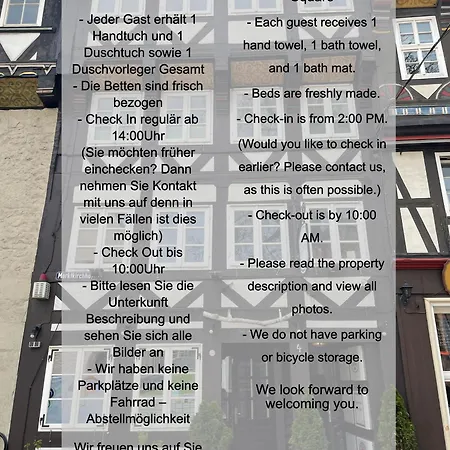 - Jeder Gast erhält 1
Handtuch und 1
Duschtuch sowie 1
Duschvorleger Gesamt
- Die Betten sind frisch
bezogen
- Check In regulär ab
14:00Uhr
(Sie möchten früher
einchecken? Dann
nehmen Sie Kontakt
mit uns auf denn in
vielen Fällen ist dies
möglich)
- Check Out bis
10:00Uhr
- Bitte lesen Sie die
Unterkunft
Beschreibung und
sehen Sie sich alle
Bilder an
- Wir haben keine
Parkplätze und keine
Fahrrad –
Abstellmöglichkeit
Wir freuen uns auf Sie
Square
- Each guest receives 1
hand towel, 1 bath towel,
and 1 bath mat.
- Beds are freshly made.
- Check-in is from 2:00 PM.
(Would you like to check in
earlier? Please contact us,
as this is often possible.)
- Check-out is by 10:00
AM.
- Please read the property
description and view all
photos.
- We do not have parking
or bicycle storage.
We look forward to
welcoming you.